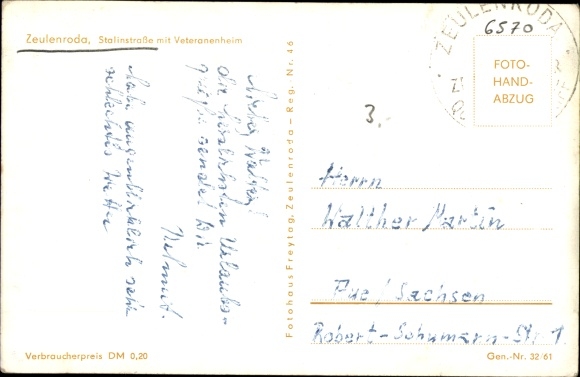 Zeulenroda, Stalinstraße mit Veteranenheim
ZEULENRODA
6570
FOTO-
HAND-
ABZUG
3,-
Lieber Walther!
die herzlichsten Urlaubs-
grüße sendet Dir
Helmut.
Habe augenblicklich sehr
schlechtes Wetter
Fotohaus Freytag, Zeulenroda – Reg. Nr. 46
Herrn
Walther Martin
Aue / Sachsen
Robert-Schumann-Str. 1
Verbraucherpreis DM 0,20
Gen.-Nr. 32/61